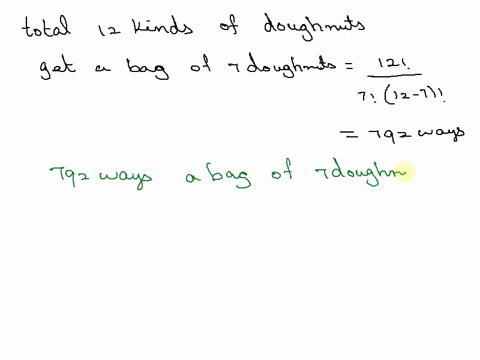 total 12 kinds of doughnuts
get a bag of 7 doughnuts = 12! / 7! (12-7)!
= 792 ways
792 ways a bag of 7 doughn